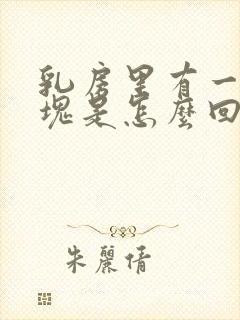 乳房里有一
塊是怎麼回
朱麗倩